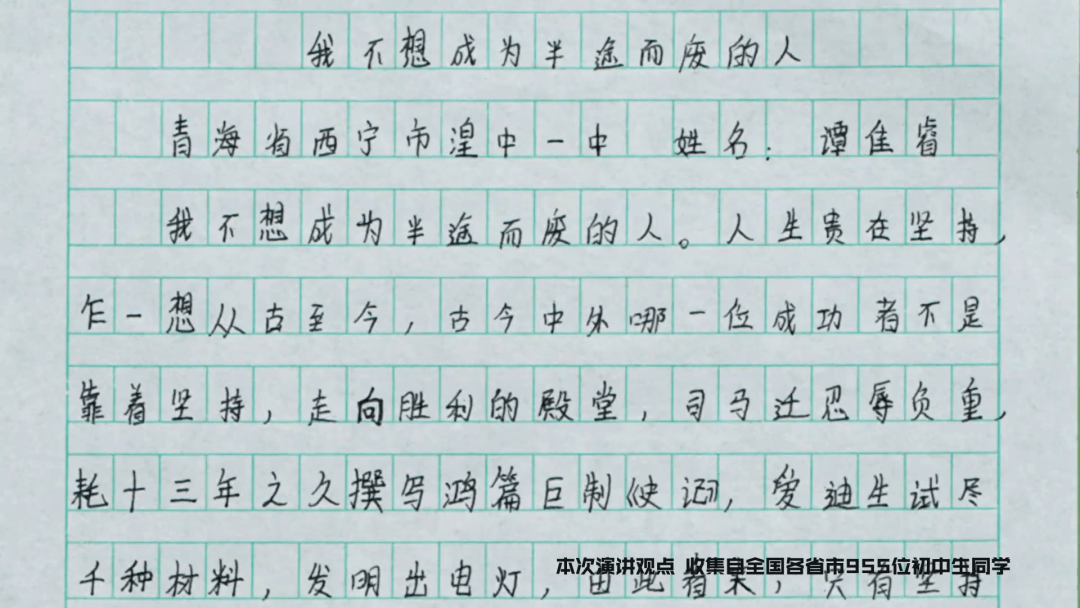 我不想成为半途而废的人
青海省西宁市湟中一中 姓名：谭隹睿
我不想成为半途而废的人。人生贵在坚持，
乍一想从古至今，古今中外哪一位成功者不是
靠着坚持，走向胜利的殿堂，司马迁忍辱负重，
耗十三年之久撰写鸿篇巨制《史记》，爱迪生试尽
千种材料，发明出电灯，由此看来，只有坚持
本次演讲观点 收集自全国各省市955位初中生同学